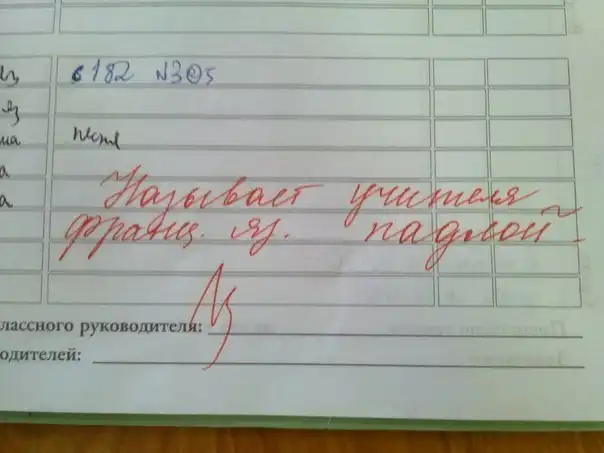 яз с 182 N3 5
яз
ма песня
а
а
Называет учителя
франц. яз. падлой
лассного руководителя:
одителей: